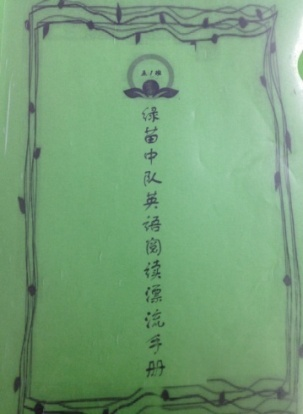 绿苗中队英语阅读漂流手册